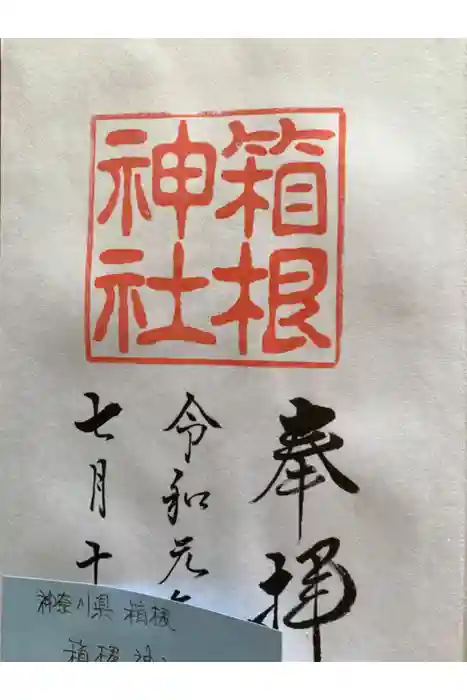 箱根
神社
奉拝
令和元
七月十
神奈川県 箱根
箱根